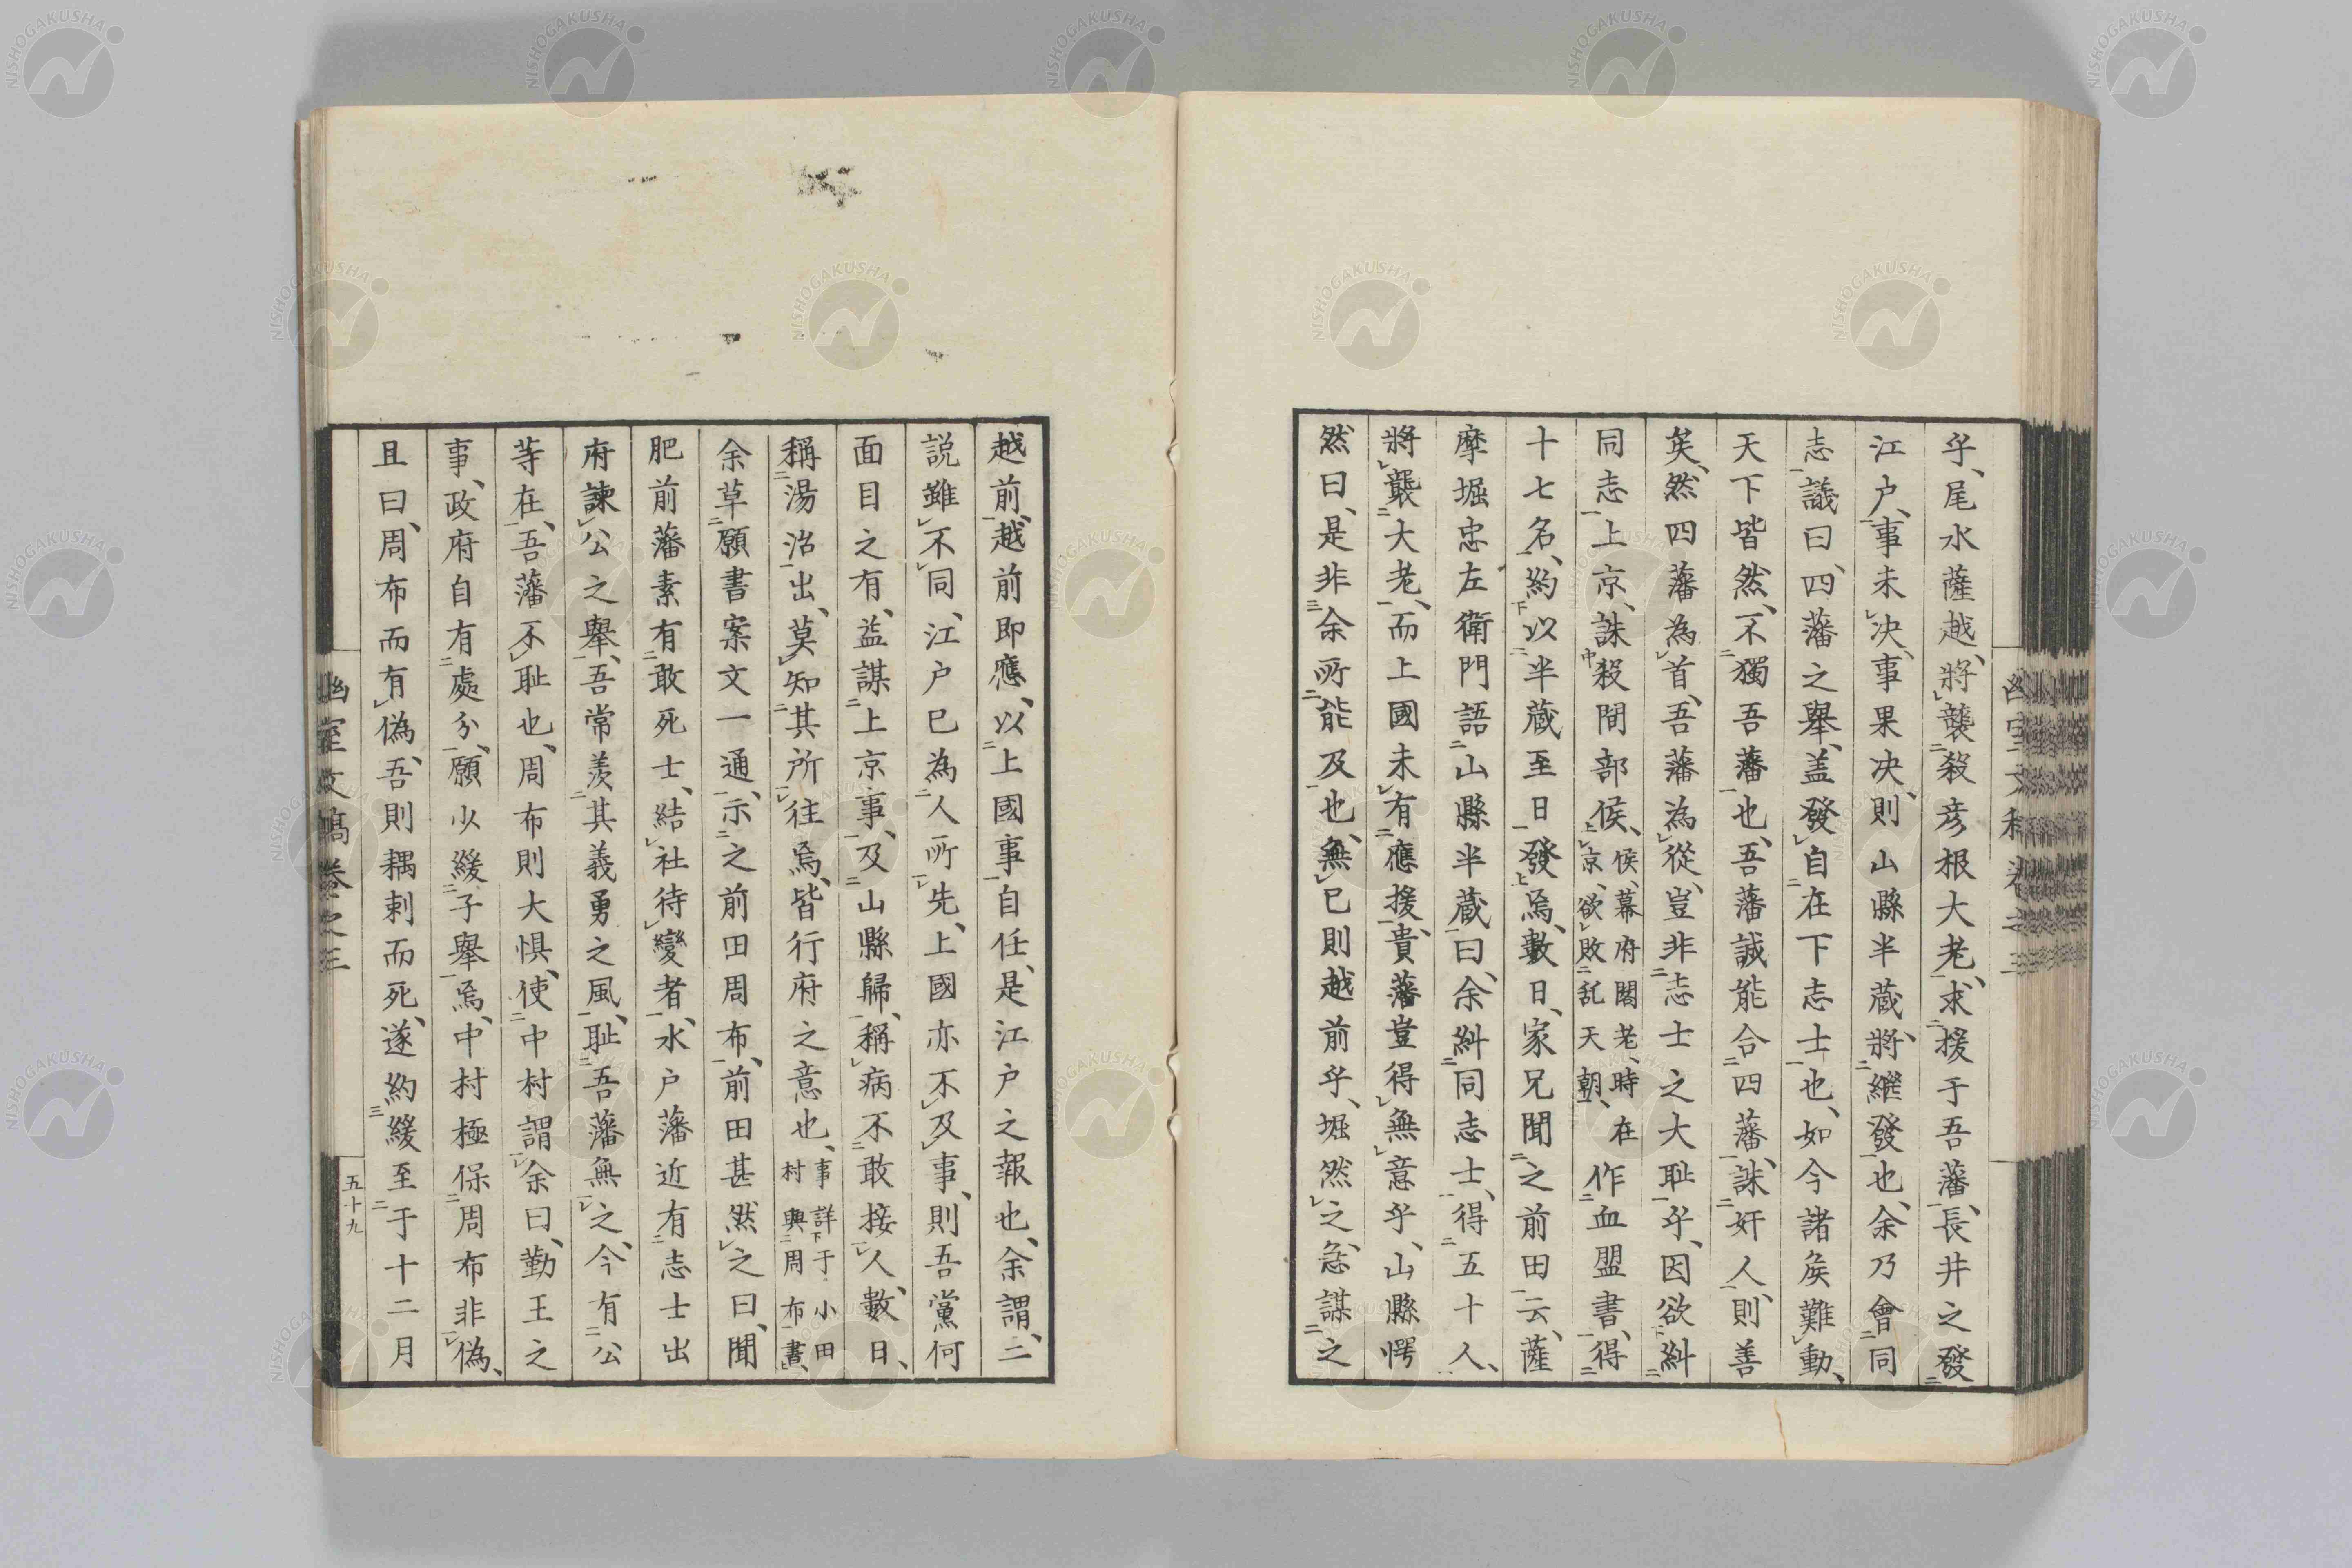 乎、尾水薩越、將襲殺彦根大老、求援于吾藩、長井之發
江户、事未决、事果决、則山縣半蔵、將繼發也、余乃會同
志議曰、四藩之舉、盖發自在下志士也、如今諸矦難動、
天下皆然、不獨吾藩也、吾藩誠能合四藩、誅奸人、則善
矣、然四藩為首、吾藩為從、豈非志士之大耻乎、因欲糾
同志上京、誅殺間部侯、侯、幕府閣老、時在京、欲敗乱天朝、作血盟書、得
十七名、約以半蔵至日發焉、數日、家兄聞之前田云、薩
摩堀忠左衛門語山縣半蔵曰、余糾同志士、得五十人、
將襲大老、而上國未有應援、貴藩豈得無意乎、山縣愕
然曰、是非余所能及也、無已則越前乎、堀然之、急謀之
越前、越前即應、以上國事自任、是江户之報也、余謂、二
説雖不同、江户已為人所先、上國亦不及事、則吾黨何
面目之有、益謀上京事、及山縣歸、稱病不敢接人、數日、
稱湯治出、莫知其所往焉、皆行府之意也、事詳于小田村與周布書、
余草願書案文一通、示之前田周布、前田甚然之曰、聞
肥前藩素有敢死士、結社待變者、水户藩近有志士出
府諫公之舉、吾常羨其義勇之風、耻吾藩無之、今有公
等在、吾藩不耻也、周布則大惧、使中村謂余曰、勤王之
事、政府自有處分、願少緩子舉焉、中村極保周布非偽、
且曰、周布而有偽、吾則耦刺而死、遂約緩至于十二月
幽室文稿卷之三
五十九
NISHOGAKUSHA